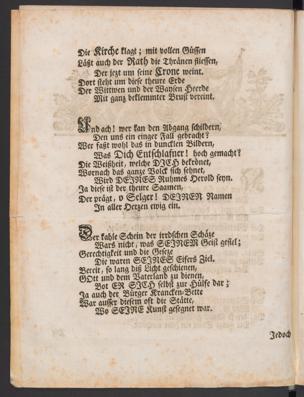 Die Kirche klagt; mit vollen Güssen
Läßt auch der Rath die Thränen fliessen,
Der jezt um seine Crone weint.
Dort steht um diese theure Erde
Der Wittwen und der Waysen Heerde
Mit ganz beklemmter Brust vereint.
Und ach! wer kan den Abgang schildern,
Den uns ein einger Fall gebracht?
Wer faßt wohl das in duncklen Bildern,
Was Dich Entschlafner! hoch gemacht?
Die Weißheit, welche DICH bekrönet,
Wornach das ganze Volck sich sehnet,
Wird DEINES Ruhmes Herold seyn.
Ja diese ist der theure Saamen,
Der prägt, o Selger! DEINEN Namen
In aller Herzen ewig ein.
Der kahle Schein der irrdschen Schäze
Wars nicht, was SEINEM Geist gefiel;
Gerechtigkeit und die Geseze
Die waren SEINES Eifers Ziel.
Bereit, so lang diß Licht geschienen,
GOtt und dem Vaterland zu dienen,
Bot ER SICH selbst zur Hülfe dar;
Ja auch der Bürger Krancken-Bette
War ausser diesem oft die Stätte,
Wo SEINE Kunst gesegnet war.
Jedoch